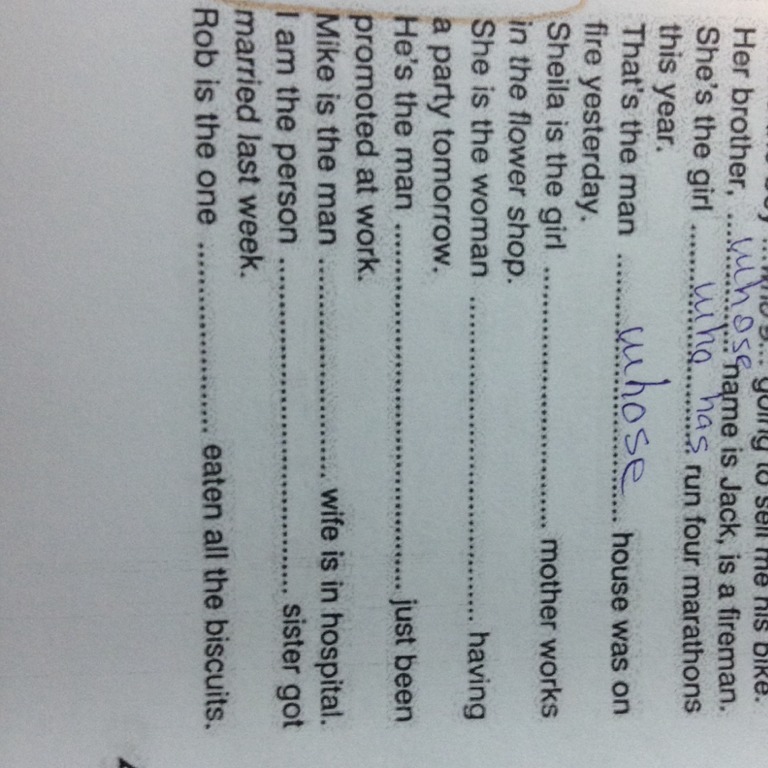 who's... going to sell me his bike.
Her brother, ...whose... name is Jack, is a fireman.
She's the girl ...who has... run four marathons
this year.
That's the man ...whose... house was on
fire yesterday.
Sheila is the girl ........................ mother works
in the flower shop.
She is the woman ........................ having
a party tomorrow.
He's the man ........................ just been
promoted at work.
Mike is the man ........................ wife is in hospital.
I am the person ........................ sister got
married last week.
Rob is the one ........................ eaten all the biscuits.